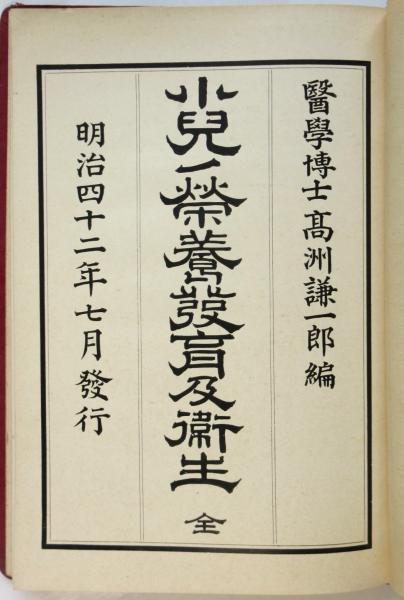 醫學博士髙洲謙一郎編
小兒ノ榮養發育及衞生 全
明治四十二年七月發行